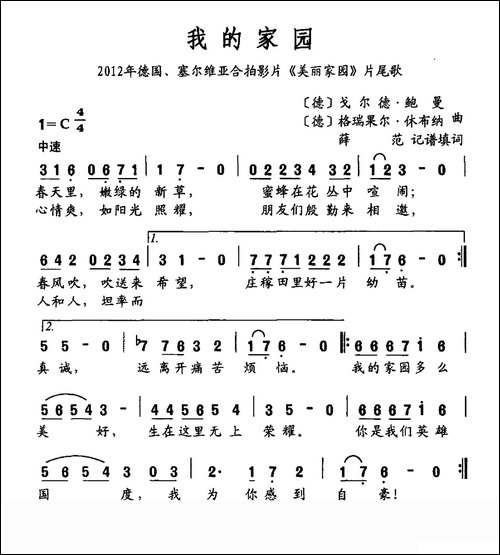 我的家园
2012年德国、塞尔维亚合拍影片《美丽家园》片尾歌
1=C 4/4
〔德〕戈尔德·鲍曼
〔德〕格瑞果尔·休布纳 曲
中速
薛 范 记谱填词
3 1 6 0 6 7 1 | 1 7 - 0 | 0 2 2 3 4 3 2 | 1 2 3 - 0 |
春天里，嫩绿的 新草， 蜜蜂在花 丛中 喧 闹；
心情爽，如阳光 照耀， 朋友们殷 勤来 相 邀，
1.
6 4 2 0 2 3 4 | 3 1 - 0 | 7 7 7 1 2 2 2 | 1 7 6 - 0 :||
春风吹，吹送来 希望， 庄稼田里好一片 幼 苗。
人和人，坦率而
2.
5 5 - 0 | ♭7 7 6 3 2 | 1 7 6 - 0 ||: 0 6 6 6 7 i 6 |
真诚， 远离开痛苦 烦 恼。 我的家园多么
5 6 5 4 3 - | 0 6 6 6 7 1 2 | 3 5 - 0 | 0 6 6 6 7 i 6 |
美 好， 生在这里无上 荣耀。 你是我们英雄
5 6 5 4 3 0 3 | 2· 1 7 2 | 1 7 6 - 0 :||
国 度，我 为 你感到 自 豪！